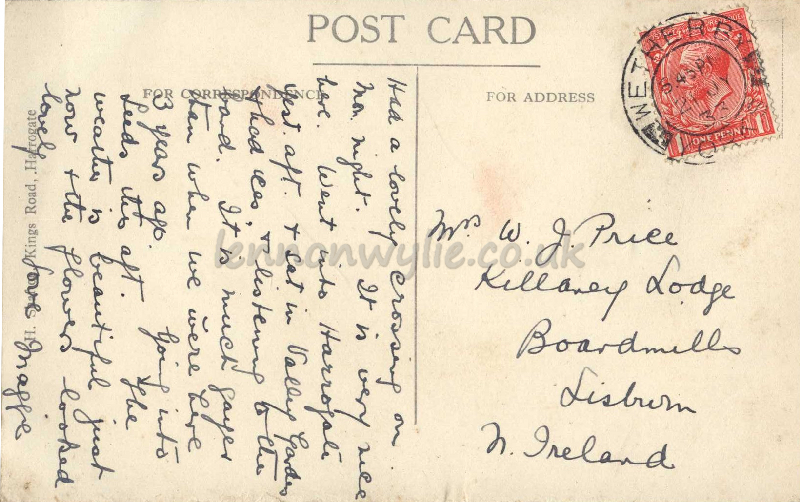 POST CARD
FOR CORRESPONDENCE
FOR ADDRESS
Had a lovely crossing on
Mon. night. It is very nice
here. Went into Harrogate
yest. aft. & sat in Valley Gardens
& had ices, & listening to the
band. It is much gayer
than when we were here
3 years ago. Going into
Leeds this aft. The
weather is beautiful just
now & the flowers looked
lovely
Love Maggie
Mrs W. J Price
Killaney Lodge
Boardmills
Lisburn
N. Ireland
WETHERBY
ONE PENNY
1 1
H. Kings Road, Harrogate
lennonwylie.co.uk